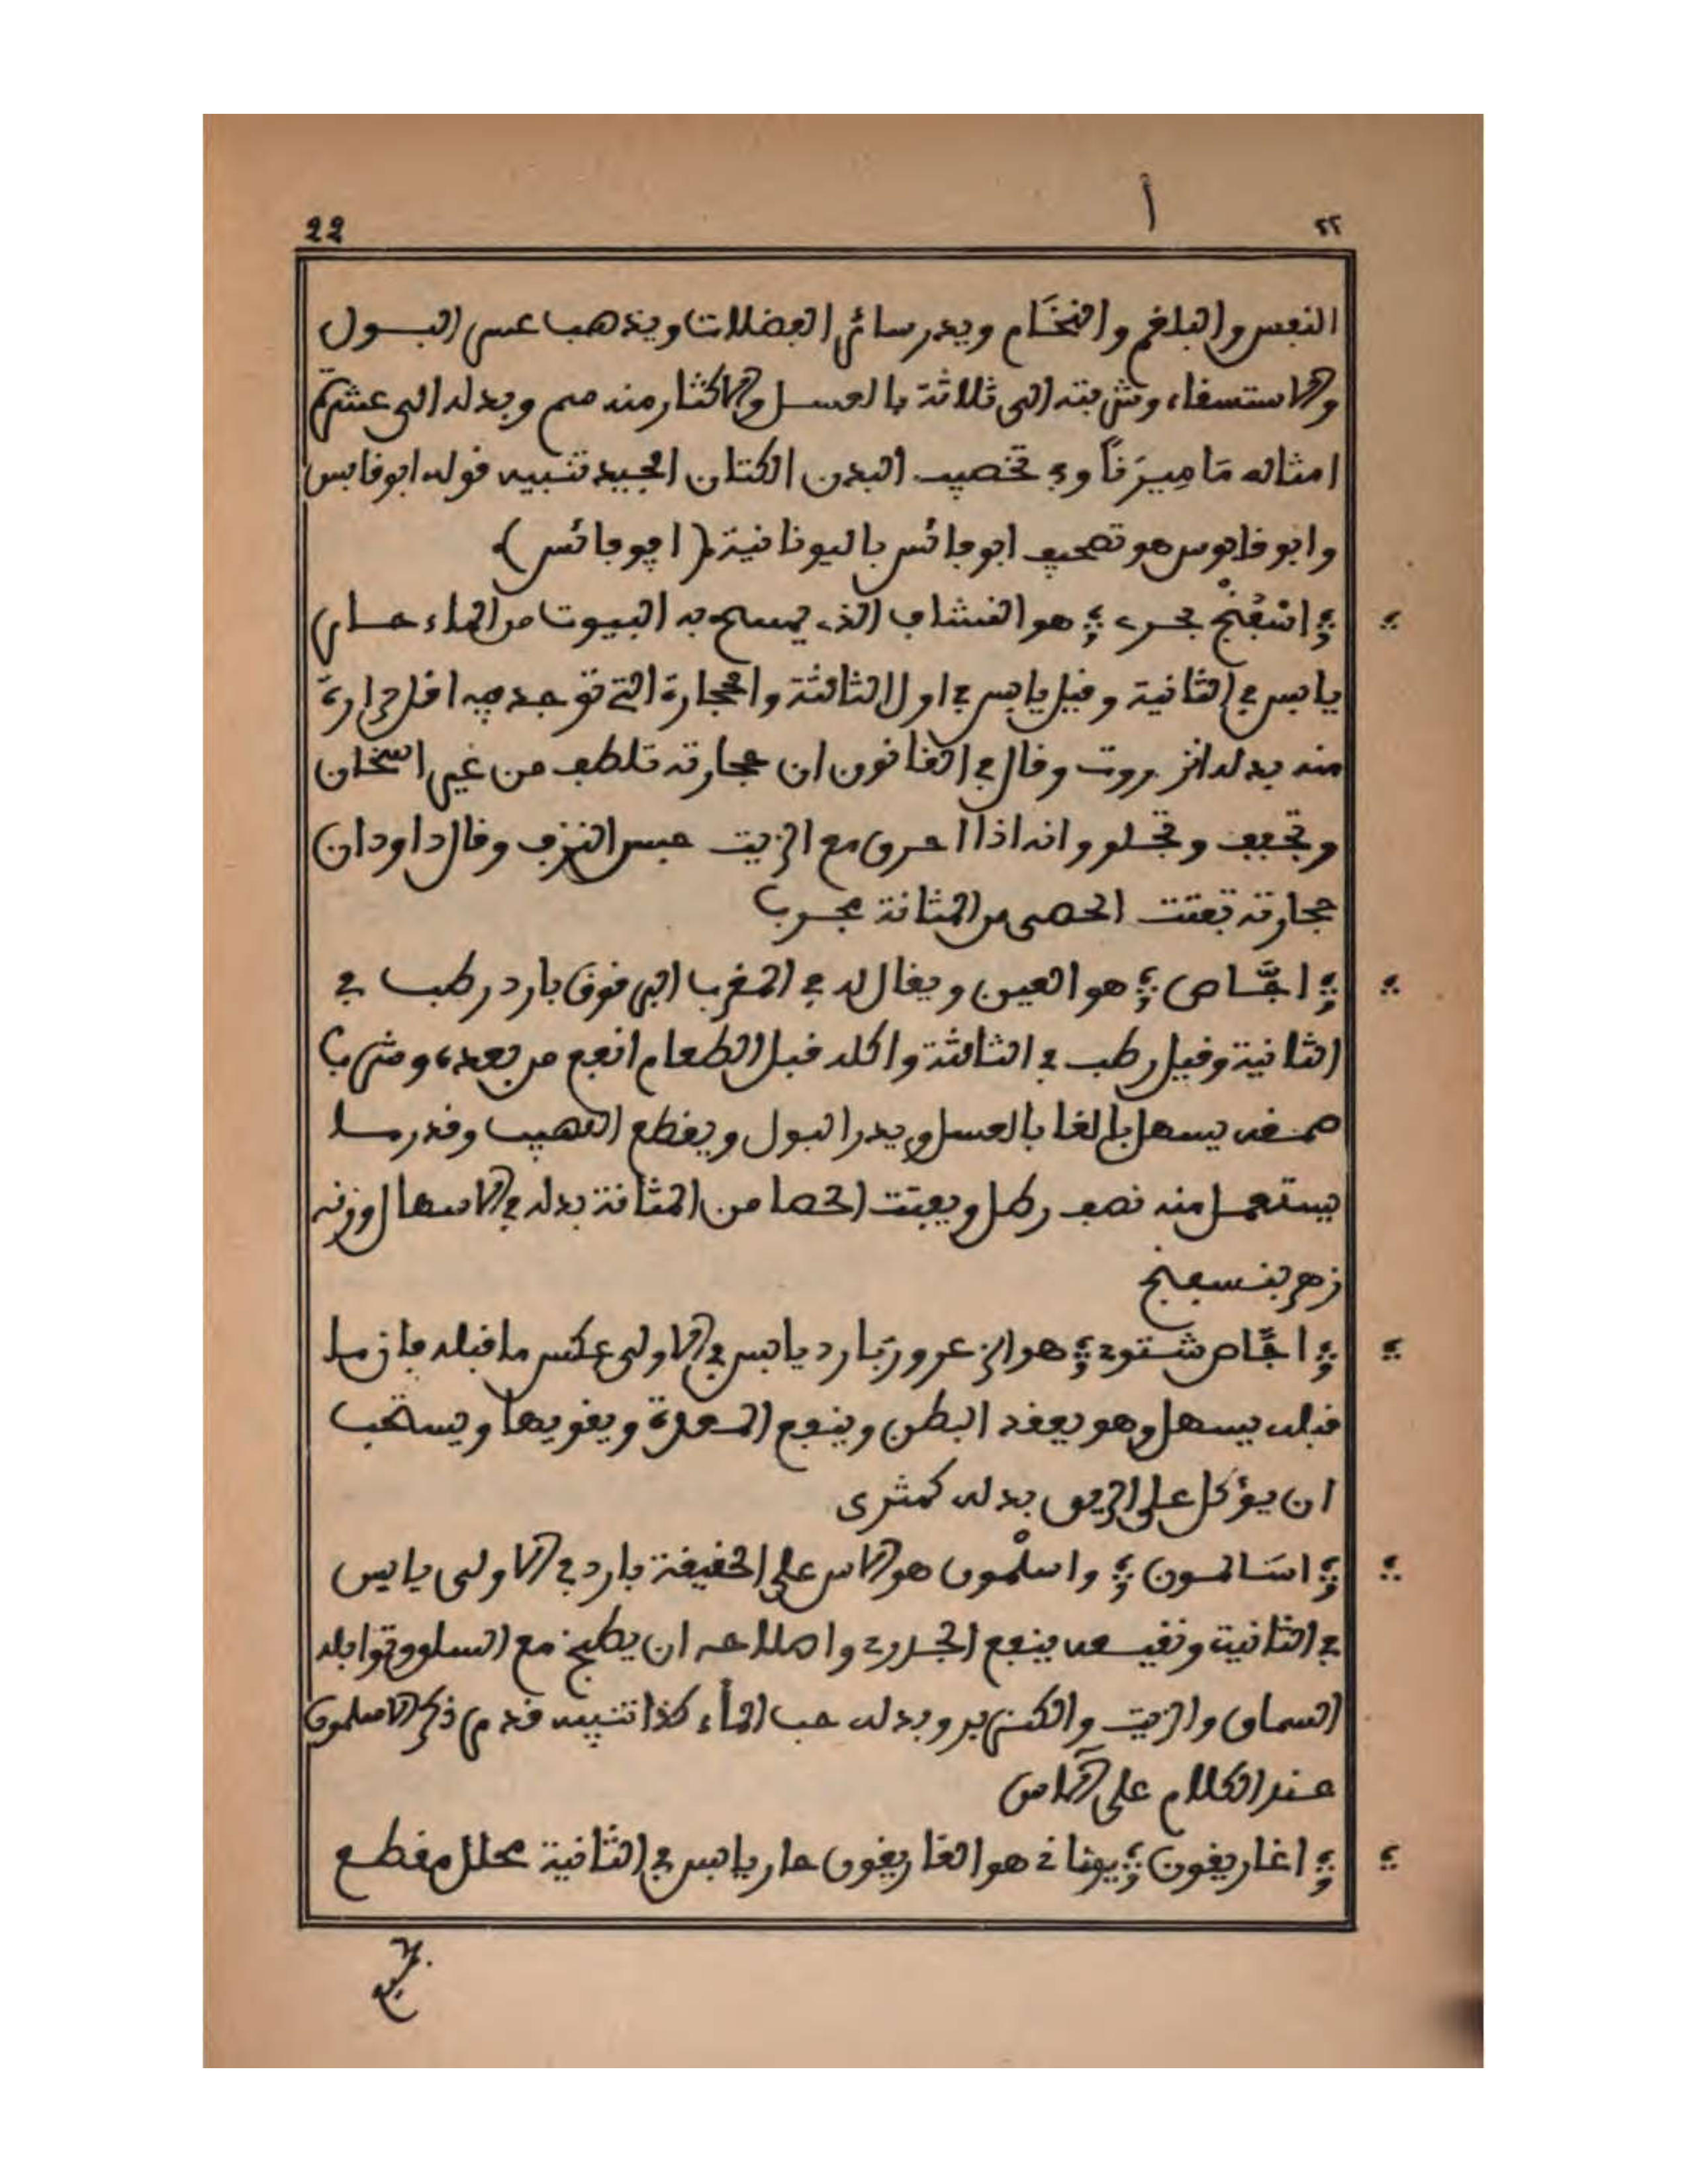 22 ا ٢٢
النفس والبلغم والنخَام ويدر سائر الفضلات ويذهب عسر البول
والاستسقاء وشربته الى ثلاثة بالعسل والاكثار منه سم وبدله الى عشرة
امثاله مَامِيرَثاً وفي تخصيب البدن الكتان الجيد تنبيه قوله ابوقابس
وابو قابوس هو تصحيف ابوفائس باليونانية (اپوفائس)
اسْفُنْج بحري هو النشاف الذي يمسح به البيوت من الماء حار
يابس في الثانية وقيل يابس في اول الثالثة والحجارة التي توجد فيه اقل حرارة
منه بدله انزروت وقال في القانون ان حجارته تلطف من غير اسخان
وتجفف وتجلو وانه اذا احرق مع الزيت حبس النزف وقال داود ان
حجارته تفتت الحصى من المثانة مجرب
اجَّاص هو العين ويقال له في المغرب البرقوق بارد رطب في
الثانية وقيل رطب في الثالثة واكله قبل الطعام انفع من بعده وشرب
صمغه يسهل بالغا بالعسل ويدر البول ويقطع اللهيب وقدر ما
يستعمل منه نصف رطل ويفتت الحصا من المثانة بدله في الاسهال وزنه
زهر بنفسج
اجَّاص شتوي هو الزعرور بارد يابس في الاولى عكس ما قبله فان ما
قبله يسهل وهو يعقد البطن وينفع المعدة ويقويها ويستحب
ان يؤكل على الريق بدله كمثرى
اسَالمون واسلْمون هو الاس على الحقيقة بارد في الاولى يابس
في الثانية ونقيعه ينفع الجدري واصلاحه ان يطبخ مع السلق وتوابله
السماق والزيت والكزبر وبدله حب الماء كذا تنبيه قدم ذكر الاسلمون
عند الكلام على الآس
اغاريقون يوناني هو الغاريقون حار يابس في الثانية محلل مقطع